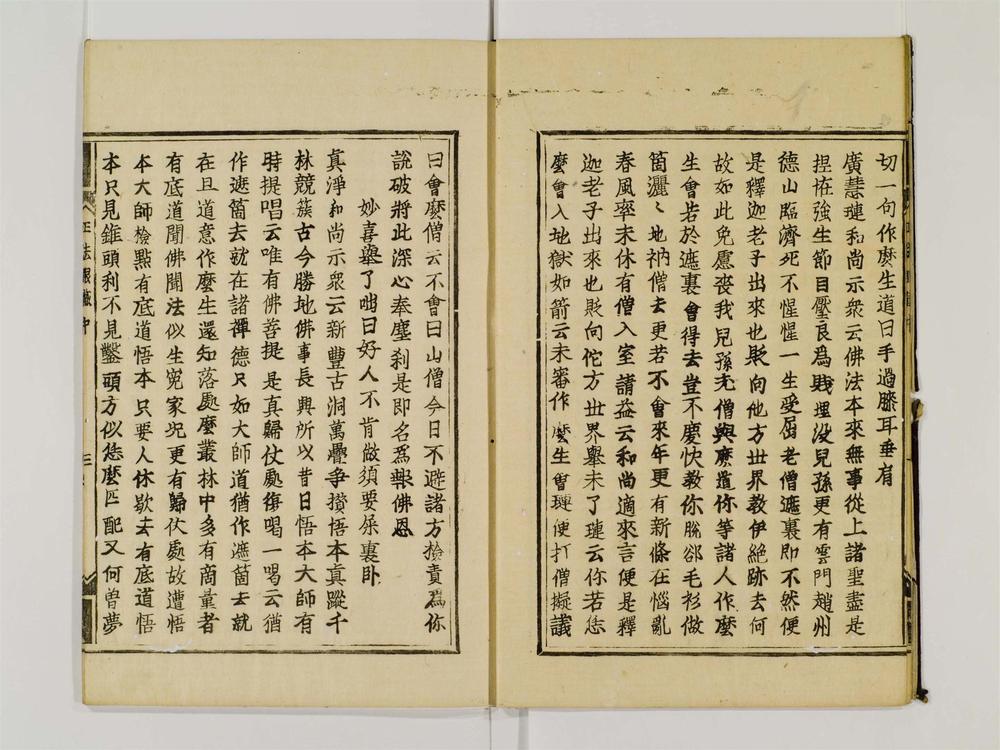 切一句作麽生道曰手過膝耳垂肩
廣慧璉和尚示衆云佛法本來無事從上諸聖盡是
捏恠強生節目壓良爲賤埋没兒孫更有雲門趙州
德山臨濟死不惺惺一生受屈老僧遮裏即不然便
是釋迦老子出來也貶向他方丗界教伊絶跡去何
故如此免慮喪我兒孫老僧與麽道你等諸人作麽
生會若於遮裏會得去豈不慶快教你脫却毛衫做
箇灑〻地衲僧去更若不會來年更有新條在惱亂
春風卒未休有僧入室請益云和尚適來言便是釋
迦老子出來也貶向佗方丗界舉未了璉云你若恁
麽會入地獄如箭云未審作麽生會璉便打僧擬議
曰會麽僧云不會曰山僧今日不避諸方撿責爲你
說破將此深心奉塵刹是即名爲報佛恩
妙喜舉了咄曰好人不肯做須要屎裏卧
真淨和尚示衆云新豐古洞萬疊爭攅悟本真蹤千
林競簇古今勝地佛事長興所以昔日悟本大師有
時提唱云唯有佛菩提是真歸仗處復喝一喝云猶
作遮箇去就在諸禪德只如大師道猶作遮箇去就
在且道意作麽生還知落處麽叢林中多有商量者
有底道聞佛聞法似生寃家况更有歸仗處故遭悟
本大師撿點有底道悟本只要人休歇去有底道悟
本只見錐頭利不見鑿頭方似恁麽匹配又何曽夢
正法眼藏中